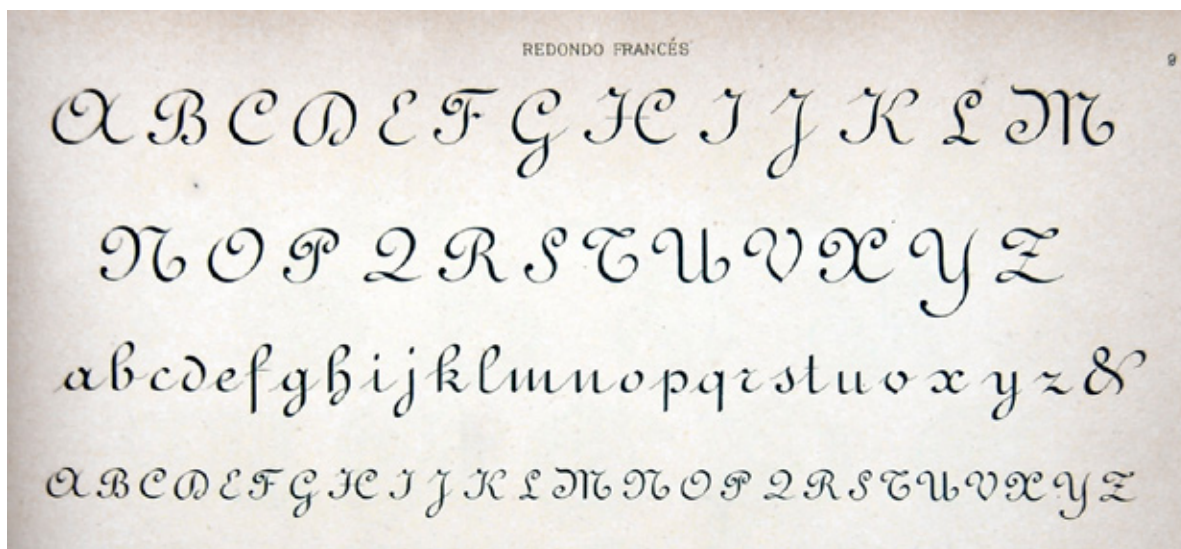 REDONDO FRANCÉS
9
A B C D E F G H I J K L M
N O P Q R S T U V X Y Z
a b c d e f g h i j k l m n o p q r s t u v x y z &
A B C D E F G H I J K L M N O P Q R S T U V X Y Z